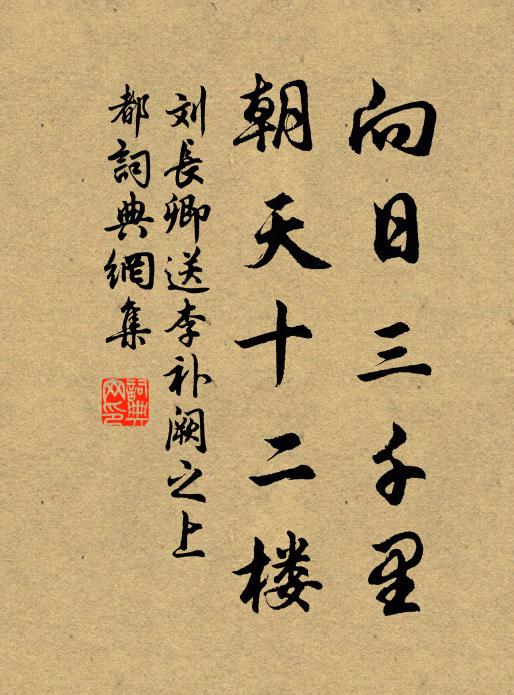 向日三千里
朝天十二楼
刘长卿送李补阙之上
都詞典網集
詞典